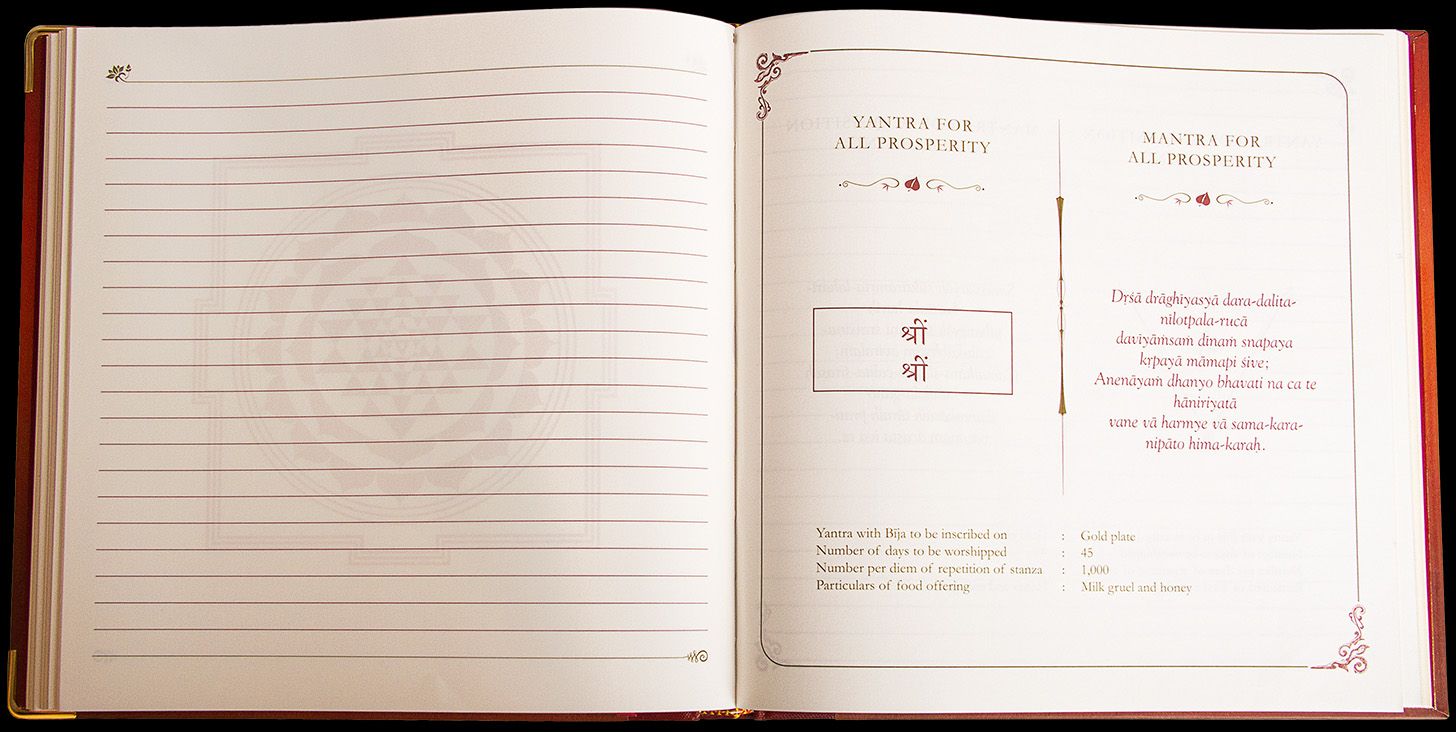 YANTRA FOR
ALL PROSPERITY
श्रीं
श्रीं
MANTRA FOR
ALL PROSPERITY
Dṛśā drāghīyasyā dara-dalita-
nīlotpala-rucā
davīyāṁsaṁ dīnaṁ snapaya
kṛpayā māmapi śive;
Anenāyaṁ dhanyo bhavati na ca te
hāniriyatā
vane vā harmye vā sama-kara-
nipāto hima-karaḥ.
Yantra with Bīja to be inscribed on : Gold plate
Number of days to be worshipped : 45
Number per diem of repetition of stanza : 1,000
Particulars of food offering : Milk gruel and honey